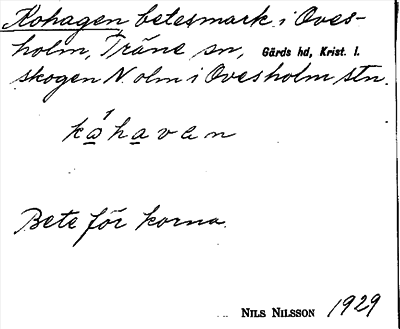 Kohagen betesmark i Oves-
holm, Träne sn, Gärds hd, Krist. l.
skogen N olm i Ovesholm stn.
kåhavan
Bete för korna.
NILS NILSSON 1929